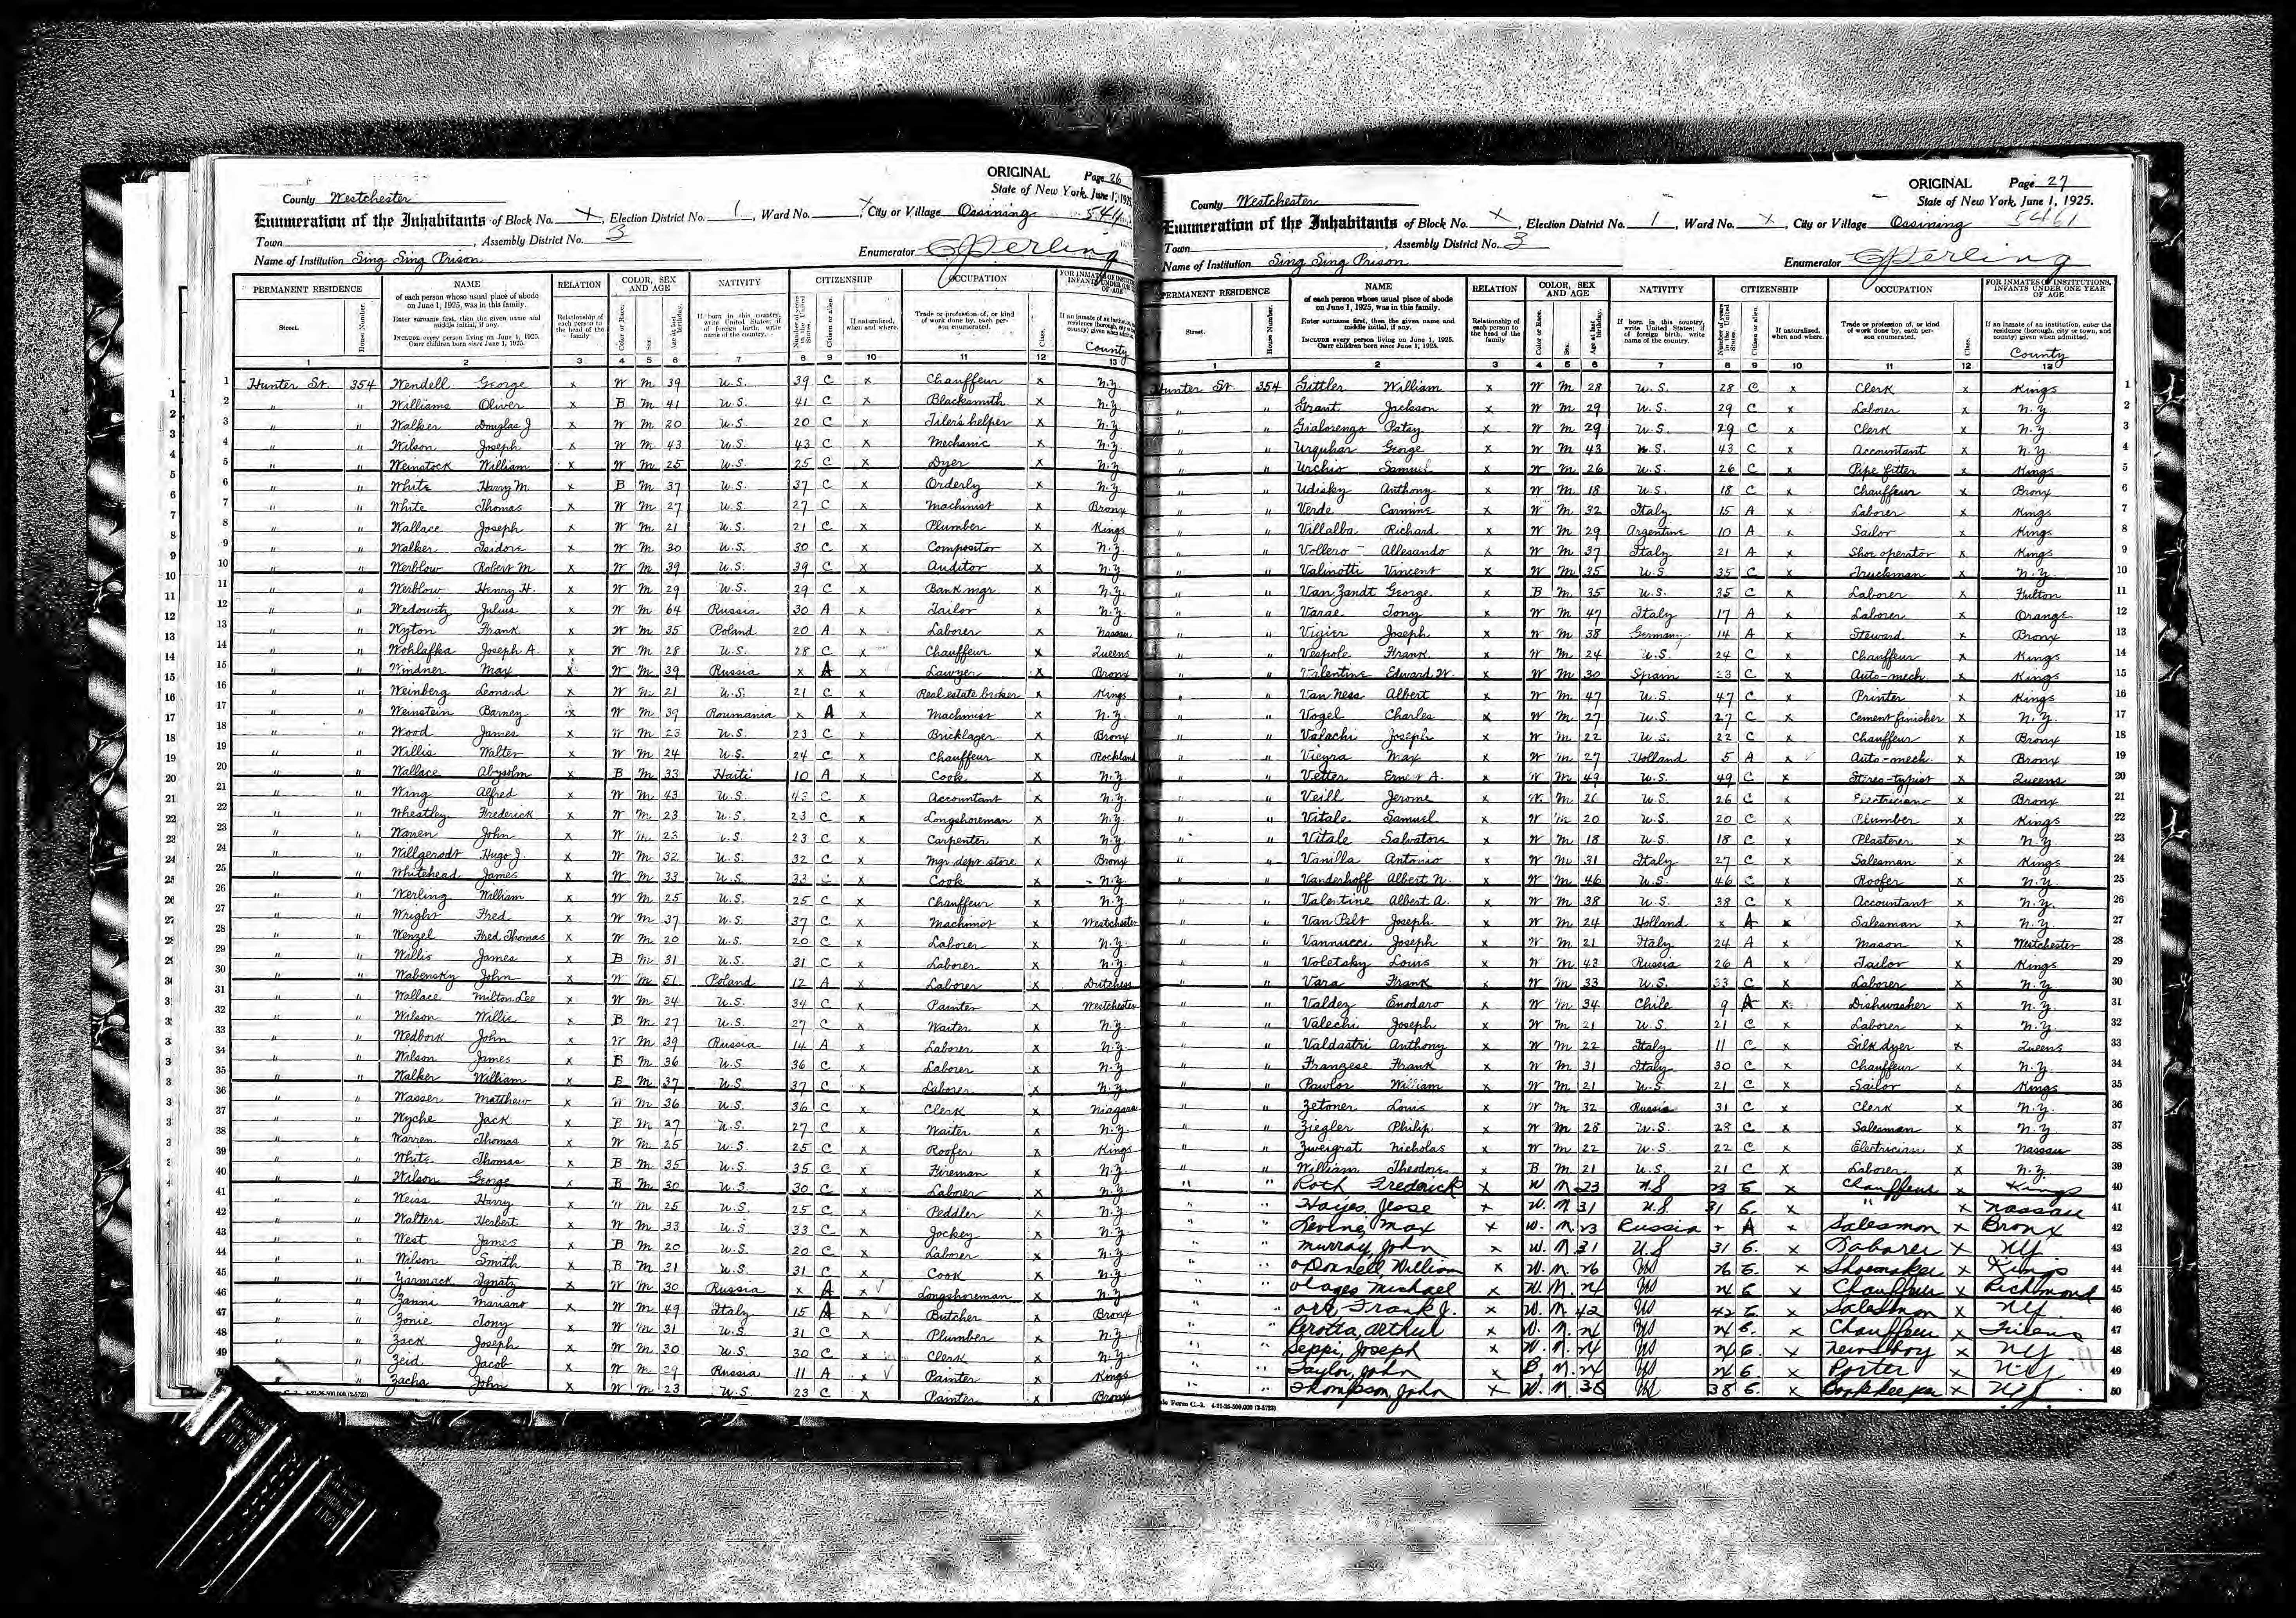 ORIGINAL Page 26
State of New York, June 1, 1925
County Westchester
Enumeration of the Inhabitants of Block No. x, Election District No. 1, Ward No. x, City or Village Ossining
Town , Assembly District No. 3
Name of Institution Sing Sing Prison Enumerator
PERMANENT RESIDENCE NAME RELATION COLOR, SEX AND AGE NATIVITY CITIZENSHIP OCCUPATION
County
1 Hunter St. 354 Wendell George x W M 39 U.S. 39 C x Chauffeur x N.Y.
2 " " Williams Oliver x B M 41 U.S. 41 C x Blacksmith x N.Y.
3 " " Walker Douglas J x W M 20 U.S. 20 C x Tiler's helper x N.Y.
4 " " Wilson Joseph x W M 43 U.S. 43 C x Mechanic x N.Y.
5 " " Weinstock William x W M 25 U.S. 25 C x Dyer x N.Y.
6 " " White Harry M. x B M 37 U.S. 37 C x Orderly x N.Y.
7 " " White Thomas x W M 27 U.S. 27 C x Machinist x Bronx
8 " " Wallace Joseph x W M 21 U.S. 21 C x Plumber x Kings
9 " " Walker Isidore x W M 30 U.S. 30 C x Compositor x N.Y.
10 " " Werblow Robert M x W M 39 U.S. 39 C x Auditor x N.Y.
11 " " Werblow Henry H. x W M 29 U.S. 29 C x Bank mgr. x N.Y.
12 " " Wedowitz Julius x W M 64 Russia 30 A x Tailor x N.Y.
13 " " Wyton Frank x W M 35 Poland 20 A x Laborer x Nassau
14 " " Wohlafka Joseph A. x W M 28 U.S. 28 C x Chauffeur x Queens
15 " " Windner Max x W M 39 Russia x A x Lawyer x Bronx
16 " " Weinberg Leonard x W M 21 U.S. 21 C x Real estate broker x Kings
17 " " Weinstein Barney x W M 39 Roumania x A x Machinist x N.Y.
18 " " Wood James x W M 23 U.S. 23 C x Bricklayer x Bronx
19 " " Willis Walter x W M 24 U.S. 24 C x Chauffeur x Rockland
20 " " Wallace x B M 33 Haiti 10 A x Cook x N.Y.
21 " " Wing Alfred x W M 43 U.S. 43 C x Accountant x N.Y.
22 " " Wheatley Frederick x W M 23 U.S. 23 C x Longshoreman x N.Y.
23 " " Warren John x W M 23 U.S. 23 C x Carpenter x N.Y.
24 " " Willgerodt Hugo J. x W M 32 U.S. 32 C x Mgr. dept. store x Bronx
25 " " Whitehead James x W M 33 U.S. 33 C x Cook x N.Y.
26 " " Werling William x W M 25 U.S. 25 C x Chauffeur x N.Y.
27 " " Wright Fred x W M 37 U.S. 37 C x Machinist x Westchester
28 " " Wenzel Fred Thomas x W M 20 U.S. 20 C x Laborer x N.Y.
29 " " Willis James x B M 31 U.S. 31 C x Laborer x N.Y.
30 " " Wabensky John x W M 51 Poland 12 A x Laborer x Dutchess
31 " " Wallace Milton Lee x W M 34 U.S. 34 C x Painter x Westchester
32 " " Wilson Willie x B M 27 U.S. 27 C x Waiter x N.Y.
33 " " Wedbork John x W M 39 Russia 14 A x Laborer x N.Y.
34 " " Wilson James x B M 36 U.S. 36 C x Laborer x N.Y.
35 " " Walker William x B M 37 U.S. 37 C x Laborer x N.Y.
36 " " Wasser Matthew x W M 36 U.S. 36 C x Clerk x Niagara
37 " " Wyche Jack x B M 27 U.S. 27 C x Waiter x N.Y.
38 " " Warren Thomas x W M 25 U.S. 25 C x Roofer x Kings
39 " " White Thomas x B M 35 U.S. 35 C x Fireman x N.Y.
40 " " Wilson George x B M 30 U.S. 30 C x Laborer x N.Y.
41 " " Weiss Harry x W M 25 U.S. 25 C x Peddler x N.Y.
42 " " Walters Herbert x W M 33 U.S. 33 C x Jockey x N.Y.
43 " " West James x B M 20 U.S. 20 C x Laborer x N.Y.
44 " " Wilson Smith x B M 31 U.S. 31 C x Cook x N.Y.
45 " " Yarmack Ignatz x W M 30 Russia x A x Longshoreman x N.Y.
46 " " Zanni Mariano x W M 49 Italy 15 A x Butcher x Bronx
47 " " Zonie Tony x W M 31 U.S. 31 C x Plumber x N.Y.
48 " " Zack Joseph x W M 30 U.S. 30 C x Clerk x N.Y.
49 " " Zeid Jacob x W M 29 Russia 11 A x Painter x Kings
" " Zacha John x W M 23 U.S. 23 C x Painter x Bronx
ORIGINAL Page 27
State of New York, June 1, 1925.
County Westchester
Enumeration of the Inhabitants of Block No. x, Election District No. 1, Ward No. x, City or Village Ossining
5461
Town , Assembly District No. 3
Name of Institution Sing Sing Prison Enumerator
PERMANENT RESIDENCE NAME RELATION COLOR, SEX AND AGE NATIVITY CITIZENSHIP OCCUPATION FOR INMATES OF INSTITUTIONS, INFANTS UNDER ONE YEAR OF AGE
County
Hunter St. 354 Gittler William x W M 28 U.S. 28 C x Clerk x Kings 1
" " Grant Jackson x W M 29 U.S. 29 C x Laborer x N.Y. 2
" " Gialorengo Patsy x W M 29 U.S. 29 C x Clerk x N.Y. 3
" " Urquhar George x W M 43 U.S. 43 C x Accountant x N.Y. 4
" " Urchio Samuel x W M 26 U.S. 26 C x Pipe fitter x Kings 5
" " Udisky Anthony x W M 18 U.S. 18 C x Chauffeur x Bronx 6
" " Verde Carmine x W M 32 Italy 15 A x Laborer x Kings 7
" " Villalba Richard x W M 29 Argentine 10 A x Sailor x Kings 8
" " Vollero Allesando x W M 37 Italy 21 A x Shoe operator x Kings 9
" " Valinotti Vincent x W M 35 U.S 35 C x Truckman x N.Y. 10
" " Van Zandt George x B M 35 U.S. 35 C x Laborer x Fulton 11
" " Varae Tony x W M 47 Italy 17 A x Laborer x Orange 12
" " Vigier Joseph x W M 38 Germany 14 A x Steward x Bronx 13
" " Vespole Frank x W M 24 U.S 24 C x Chauffeur x Kings 14
" " Valentine Edward W. x W M 30 Spain 23 C x Auto-mech. x Kings 15
" " Van Ness Albert x W M 47 U.S. 47 C x Printer x Kings 16
" " Vogel Charles x W M 27 U.S. 27 C x Cement finisher x N.Y. 17
" " Valachi Joseph x W M 22 U.S. 22 C x Chauffeur x Bronx 18
" " Vieyra Max x W M 27 Holland 5 A x Auto-mech. x Bronx 19
" " Vetter Ernest A. x W M 49 U.S. 49 C x Stereo-typist x Queens 20
" " Veill Jerome x W M 26 U.S. 26 C x Electrician x Bronx 21
" " Vitale Samuel x W M 20 U.S. 20 C x Plumber x Kings 22
" " Vitale Salvatore x W M 18 U.S. 18 C x Plasterer x N.Y. 23
" " Vanilla Antonio x W M 31 Italy 27 C x Salesman x Kings 24
" " Vanderhoff Albert N. x W M 46 U.S. 46 C x Roofer x N.Y. 25
" " Valentine Albert A. x W M 38 U.S. 38 C x Accountant x N.Y. 26
" " Van Pelt Joseph x W M 24 Holland x A x Salesman x N.Y. 27
" " Vannucci Joseph x W M 21 Italy 24 A x Mason x Westchester 28
" " Voletsky Louis x W M 43 Russia 26 A x Tailor x Kings 29
" " Vara Frank x W M 33 U.S. 33 C x Laborer x N.Y. 30
" " Valdez Enodaro x W M 34 Chile 9 A x Dishwasher x N.Y. 31
" " Valechi Joseph x W M 21 U.S. 21 C x Laborer x N.Y. 32
" " Valdastri Anthony x W M 22 Italy 11 C x Silk dyer x Queens 33
" " Franzese Frank x W M 31 Italy 30 C x Chauffeur x N.Y. 34
" " Pawlor William x W M 21 U.S. 21 C x Sailor x Kings 35
" " Zetoner Louis x W M 32 Russia 31 C x Clerk x N.Y. 36
" " Ziegler Philip x W M 28 U.S. 28 C x Salesman x N.Y. 37
" " Zweigrat Nicholas x W M 22 U.S. 22 C x Electrician x Nassau 38
" " William Theodore x B M 21 U.S. 21 C x Laborer x N.Y. 39
" " Roth Frederick x W M 23 U.S 23 C x Chauffeur x Kings 40
" " Hayes, Jesse x W. M 31 U.S. 31 C. x " x Nassau 41
" " Levine, Max x W. M. 23 Russia + A x Salesman x Bronx 42
" " Murray, John x W. M 31 U.S 31 C. x Laborer x NY 43
" " O'Donnell, William x W. M. 26 US 26 C. x Shoemaker x Kings 44
" " Michael x W. M. 24 US 24 C x Chauffeur x Richmond 45
" " Orr, Frank J. x W. M 42 US 42 C x Salesman x NY 46
" " Perotta, Arthur x W. M. 24 US 24 C. x Chauffeur x 47
" " Seppi, Joseph x W. M. 24 US 24 C. x Newsboy x NY 48
" " Taylor, John x B. M. 24 US 24 C x Porter x NY 49
" " Thompson, John x W. M. 38 US 38 C. x Bookkeeper x NY. 50